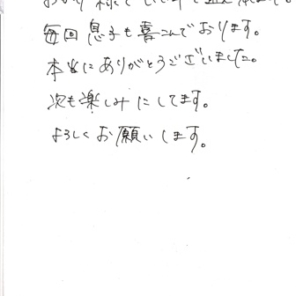 毎回息子も喜こんでおります。
本当にありがとうございました。
次も楽しみにしてます。
よろしくお願いします。